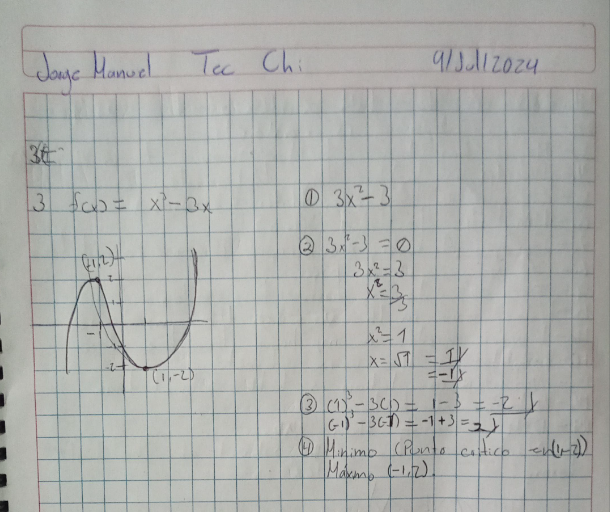 Jorge Manuel Tec Chi 9/Jul/2024
3 f(x) = x³ - 3x
(-1,2)
2
1
-1
-2
(1,-2)
① 3x² - 3
② 3x² - 3 = 0
3x² = 3
x² = 3/3
x² = 1
x = √1 = 1
= -1
③ (1)³ - 3(1) = 1 - 3 = -2
(-1)³ - 3(-1) = -1 + 3 = 2
④ Minimo (Punto critico en (1,-2))
Máximo (-1,2)